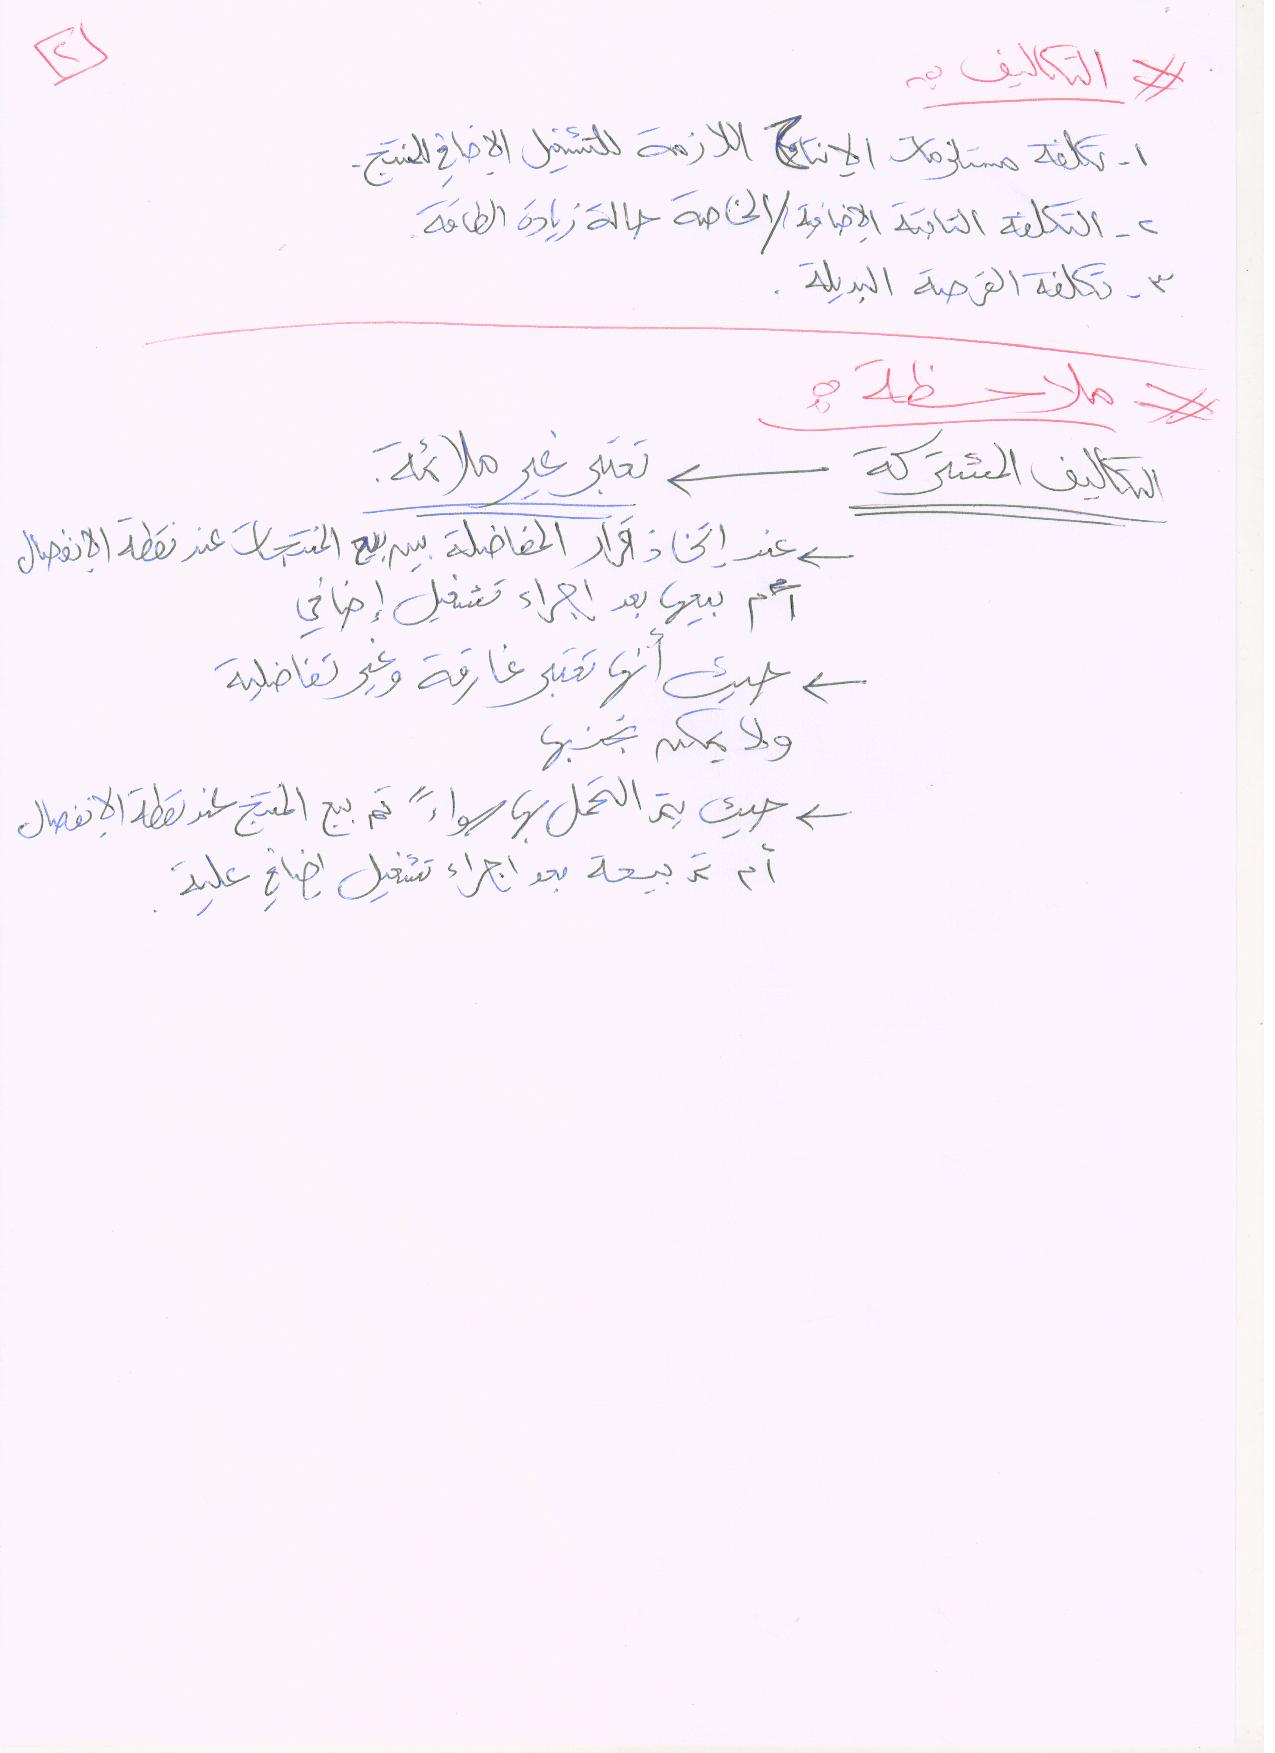 ٢
# التكاليف :-
١- تكلفة مستلزمات الإنتاج اللازمة للتشغيل الإضافي للمنتج.
٢- التكلفة الثابتة الإضافية/الخاصة حالة زيادة الطاقة.
٣- تكلفة الفرصة البديلة.
# ملاحظة :-
التكاليف المشتركة ← تعتبر غير ملائمة.
← عند إتخاذ قرار المفاضلة بين بيع المنتجات عند نقطة الإنفصال
أم بيعها بعد اجراء تشغيل إضافي
← حيث أنها تعتبر غارقة وغير تفاضلية
ولا يمكن تجنبها
← حيث يتم التحمل بها سواءً تم بيع المنتج عند نقطة الإنفصال
أم تم بيعة بعد اجراء تشغيل إضافي علية.